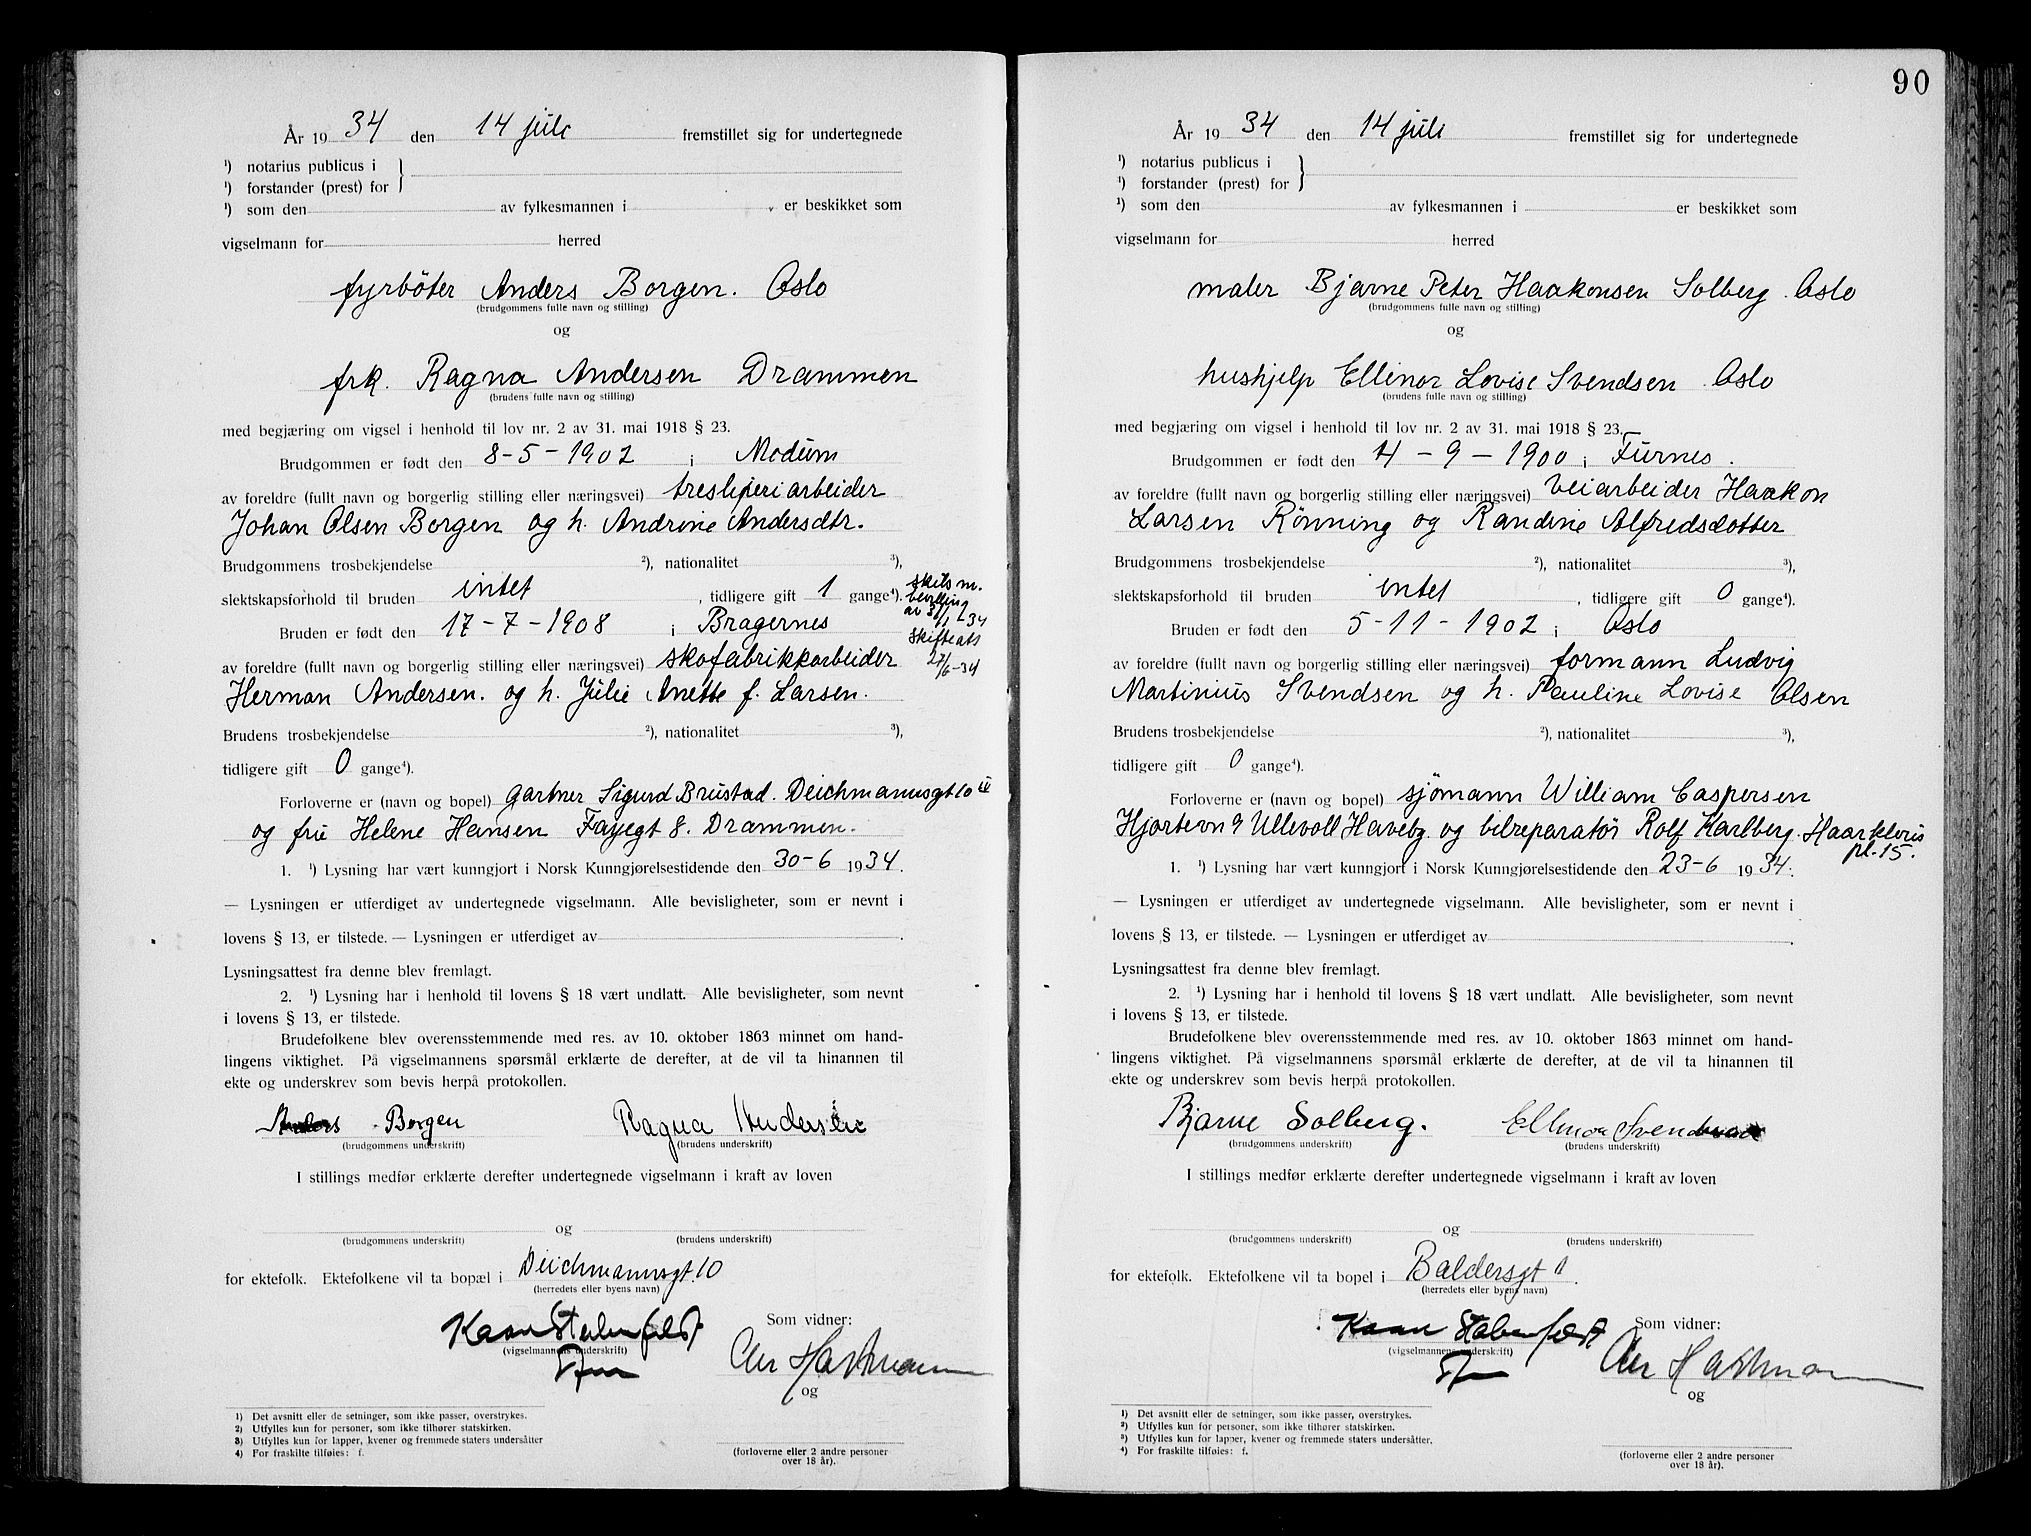 År 19 34 den 14 juli fremstillet sig for undertegnede
¹) notarius publicus i
¹) forstander (prest) for
¹) som den av fylkesmannen i er beskikket som
vigselmann for herred
fyrböter Anders Borgen. Oslo
(brudgommens fulle navn og stilling)
og
frk. Ragna Andersen Drammen
(brudens fulle navn og stilling)
med begjæring om vigsel i henhold til lov nr. 2 av 31. mai 1918 § 23.
Brudgommen er født den 8-5-1902 i Modum
av foreldre (fullt navn og borgerlig stilling eller næringsvei) tresliperiarbeider
Johan Olsen Borgen og h. Andrine Andersdtr.
Brudgommens trosbekjendelse ²), nationalitet ³),
slektskapsforhold til bruden intet, tidligere gift 1 gange⁴). skilsm.
bevilling
av 3/1 34
Bruden er født den 17-7-1908 i Bragernes
skifteats
27/6-34
av foreldre (fullt navn og borgerlig stilling eller næringsvei) skofabrikkarbeider
Herman Andersen. og h. Julie Anette f. Larsen.
Brudens trosbekjendelse ²), nationalitet ³),
tidligere gift 0 gange⁴).
Forloverne er (navn og bopel) gartner Sigurd Brustad. Deichmannsgt 10 III
og fru Helene Hansen Fayegt 8. Drammen.
1. ¹) Lysning har vært kunngjort i Norsk Kunngjørelsestidende den 30-6 1934.
— Lysningen er utferdiget av undertegnede vigselmann. Alle bevisligheter, som er nevnt i
lovens § 13, er tilstede. — Lysningen er utferdiget av .
Lysningsattest fra denne blev fremlagt.
2. ¹) Lysning har i henhold til lovens § 18 vært undlatt. Alle bevisligheter, som nevnt
i lovens § 13, er tilstede.
Brudefolkene blev overensstemmende med res. av 10. oktober 1863 minnet om hand-
lingens viktighet. På vigselmannens spørsmål erklærte de derefter, at de vil ta hinannen til
ekte og underskrev som bevis herpå protokollen.
Anders Borgen Ragna Andersen
(brudgommens underskrift) (brudens underskrift)
I stillings medfør erklærte derefter undertegnede vigselmann i kraft av loven
og
(brudgommens underskrift) (brudens underskrift)
for ektefolk. Ektefolkene vil ta bopæl i Deichmannsgt. 10
(herredets eller byens navn)
Som vidner:
(vigselmannens underskrift)
Chr Hartmann
og
1) Det avsnitt eller de setninger, som ikke passer, overstrykes.
2) Utfylles kun for personer, som ikke tilhører statskirken.
3) Utfylles kun for lapper, kvener og fremmede staters undersåtter
4) For fraskilte tilføies: f.
(forloverne eller 2 andre personer
over 18 år).
90
År 19 34 den 14 juli fremstillet sig for undertegnede
¹) notarius publicus i
¹) forstander (prest) for
¹) som den av fylkesmannen i er beskikket som
vigselmann for herred
maler Bjarne Peter Haakonsen Solberg. Oslo
(brudgommens fulle navn og stilling)
og
hushjelp Ellinor Lovise Svendsen. Oslo
(brudens fulle navn og stilling)
med begjæring om vigsel i henhold til lov nr. 2 av 31. mai 1918 § 23.
Brudgommen er født den 4-9-1900 i Furnes.
av foreldre (fullt navn og borgerlig stilling eller næringsvei) veiarbeider Haakon
Larsen Rønning og Randine Alfredsdotter
Brudgommens trosbekjendelse ²), nationalitet ³),
slektskapsforhold til bruden intet, tidligere gift 0 gange⁴).
Bruden er født den 5-11-1902 i Oslo
av foreldre (fullt navn og borgerlig stilling eller næringsvei) formann Ludvig
Martinius Svendsen og h. Pauline Lovise Olsen
Brudens trosbekjendelse ²), nationalitet ³),
tidligere gift 0 gange⁴).
Forloverne er (navn og bopel) sjømann William Caspersen
Hjortevn 9 Ullevoll Haveby. og bilreparatør Rolf Karlberg. Haarklovs
pl. 15.
1. ¹) Lysning har vært kunngjort i Norsk Kunngjørelsestidende den 23-6 1934.
— Lysningen er utferdiget av undertegnede vigselmann. Alle bevisligheter, som er nevnt i
lovens § 13, er tilstede. — Lysningen er utferdiget av .
Lysningsattest fra denne blev fremlagt.
2. ¹) Lysning har i henhold til lovens § 18 vært undlatt. Alle bevisligheter, som nevnt
i lovens § 13, er tilstede.
Brudefolkene blev overensstemmende med res. av 10. oktober 1863 minnet om hand-
lingens viktighet. På vigselmannens spørsmål erklærte de derefter, at de vil ta hinannen til
ekte og underskrev som bevis herpå protokollen.
Bjarne Solberg. Ellinor Svendsen
(brudgommens underskrift) (brudens underskrift)
I stillings medfør erklærte derefter undertegnede vigselmann i kraft av loven
og
(brudgommens underskrift) (brudens underskrift)
for ektefolk. Ektefolkene vil ta bopel i Baldersgt 11.
(herredets eller byens navn)
Som vidner:
(vigselmannens underskrift)
Chr Hartmann
og
1) Det avsnitt eller de setninger, som ikke passer, overstrykes.
²) Utfylles kun for personer, som ikke tilhører statskirken.
³) Utfylles kun for lapper, kvener og fremmede staters undersåtter.
⁴) For fraskilte tilføies: f.
(forloverne eller 2 andre personer
over 18 år).